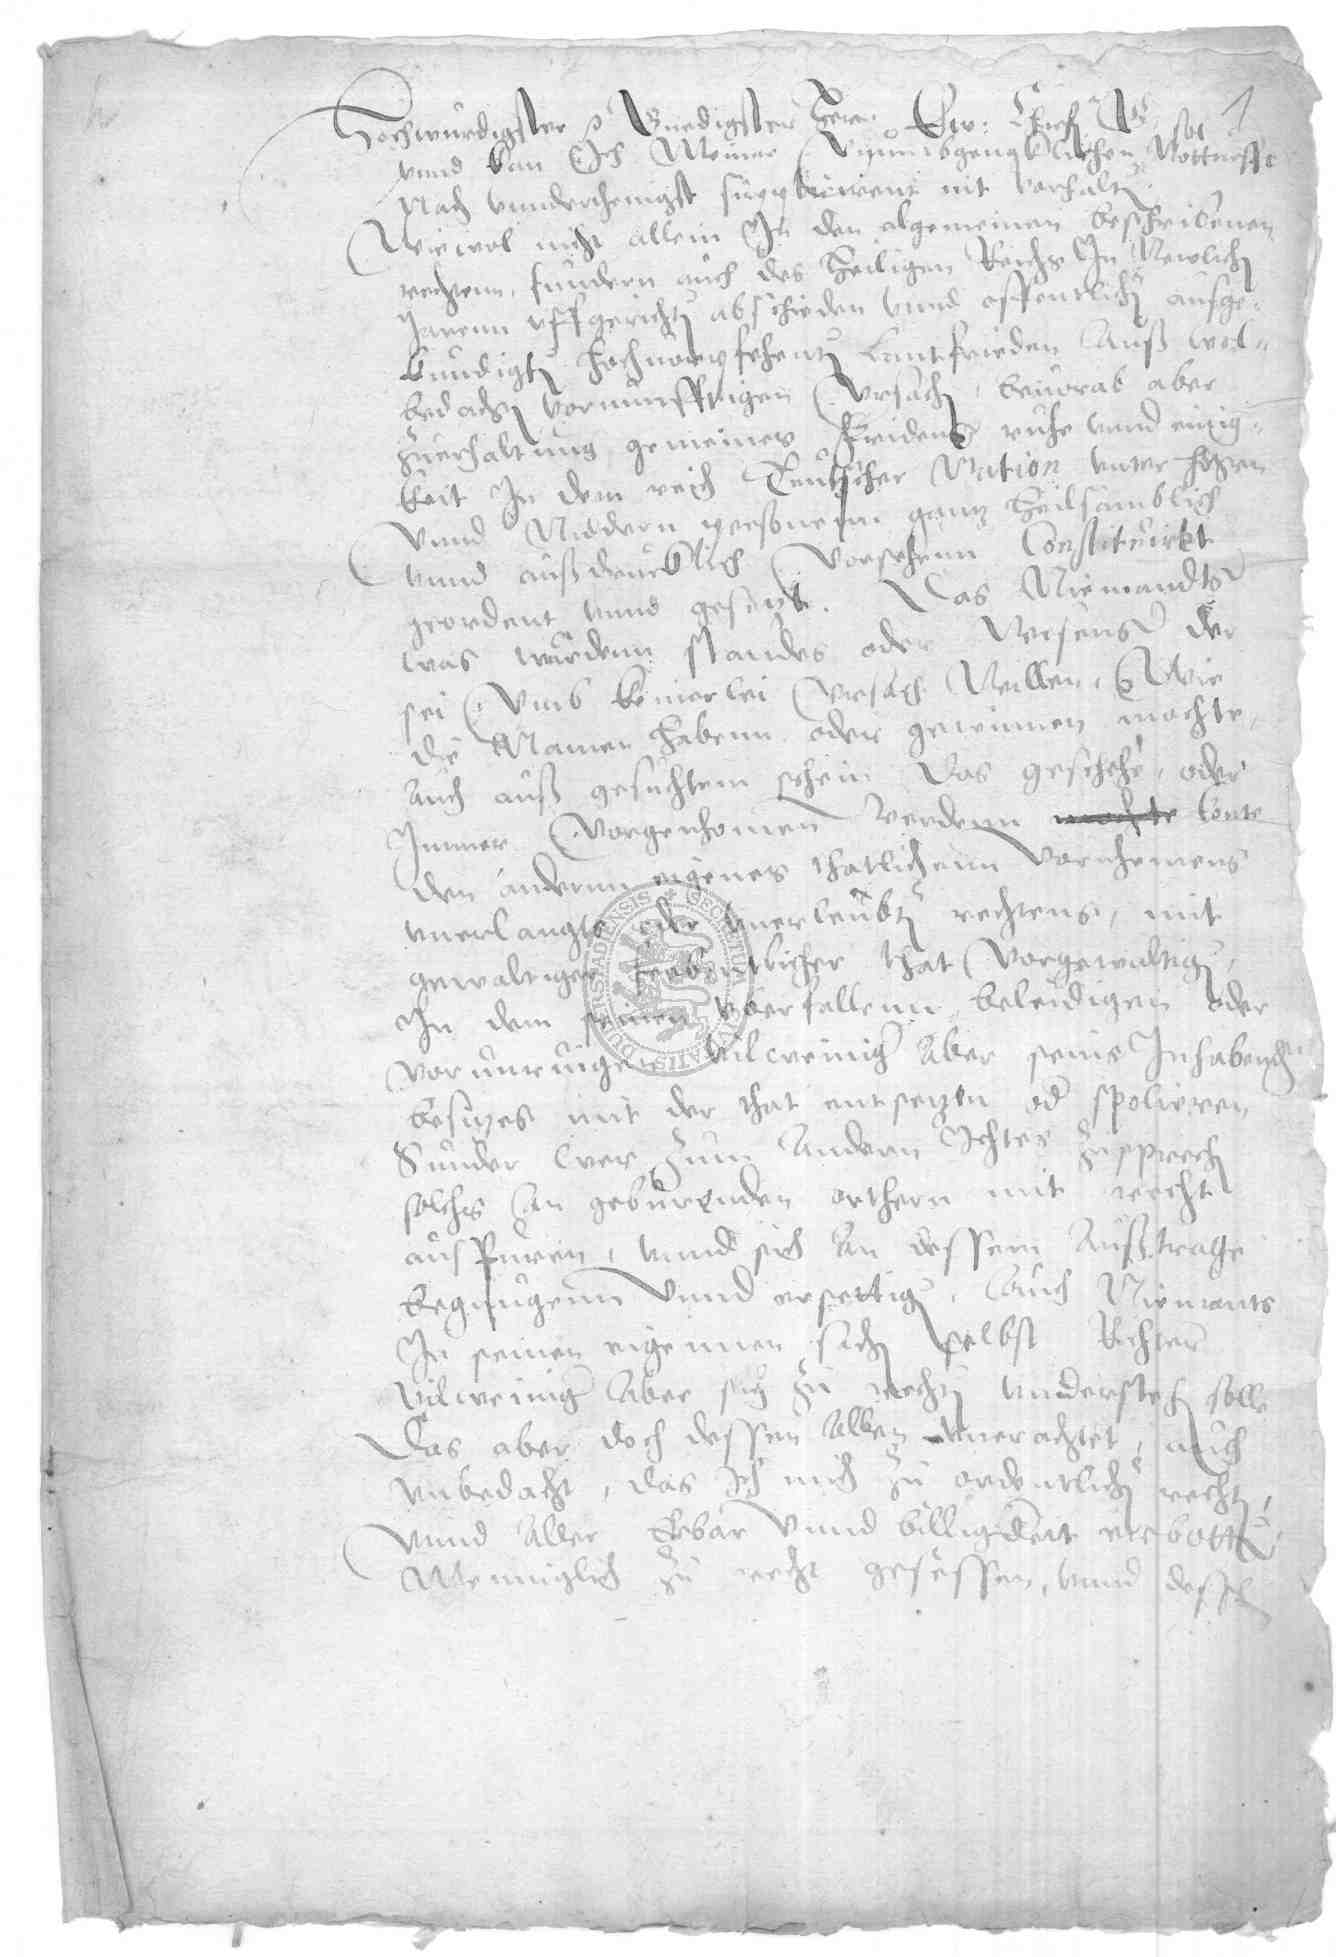 1
Hochwurdigster Gnedigster Herr Ew: Churf G sol
vnnd kan Ich Meiner vnumbgenglichen Notturfft
Nach vnnderthenigst supplicirent nit vorhalten
Wiewol nicht allein In den algemeinen beschribenen
rechtenn, sundern auch des Heiligen Reichs In Newlich
Jarenn vffgerichten abschieden vnnd offentlichen ausge-
kundigten hochuorpeenten Lantfrieden Auß wol-
bedachten vornunfftigen Vrsachen, beuorab aber
zuerhaltung gemeines Fridens ruhe vnnd einig-
keit In dem reich Teutscher Nation vnter hohen
Vnnd Niddern personenn gantz Heilsamblich
vnnd außdrucklich Vorsehenn Constituirt
geordent vnnd gesatzt. Das Niemandts
was wurdenn standes oder Wesens der
sei Vmb keinerlei Vrsach Willen, Wie
die Namen habenn oder gewinnen mochte,
Auch auß gesuchtem schein Das geschehe, oder
Immer Vorgenhomen Werdenn mochte konte
den anderun eigenes thatlichenn Vornhemens
vnerlangts oder vnerleubts rechtens, mit
gewaltiger freuentlicher that Vorgewaltigen,
In dem seinen vberfallenn beleidigen oder
Vorunruigen vilweiniger Aber seins Inhabenden
besitzes mit der that entsetzen oder spolieren
Sunder Wer zum Andern Ichtes zusprechen
solchs An geburenden orthern mit recht
ausfuren, vnnd sich An dessem Außtrage
begnugenn Vnnd ersettigen, Auch Niemants
In seinen eigeinen sachen selbst Richter
Vilweiniger Aber sich zu rechen vnderstehen solle
Das aber doch dessen Allen vnerachtet, auch
vnbedacht, das Ich mich zu ordentlichen rechten,
Vnnd Aller Erbar Vnnd billigkeit erbotten,
Menniglich zu recht gesessen, vnnd dessen